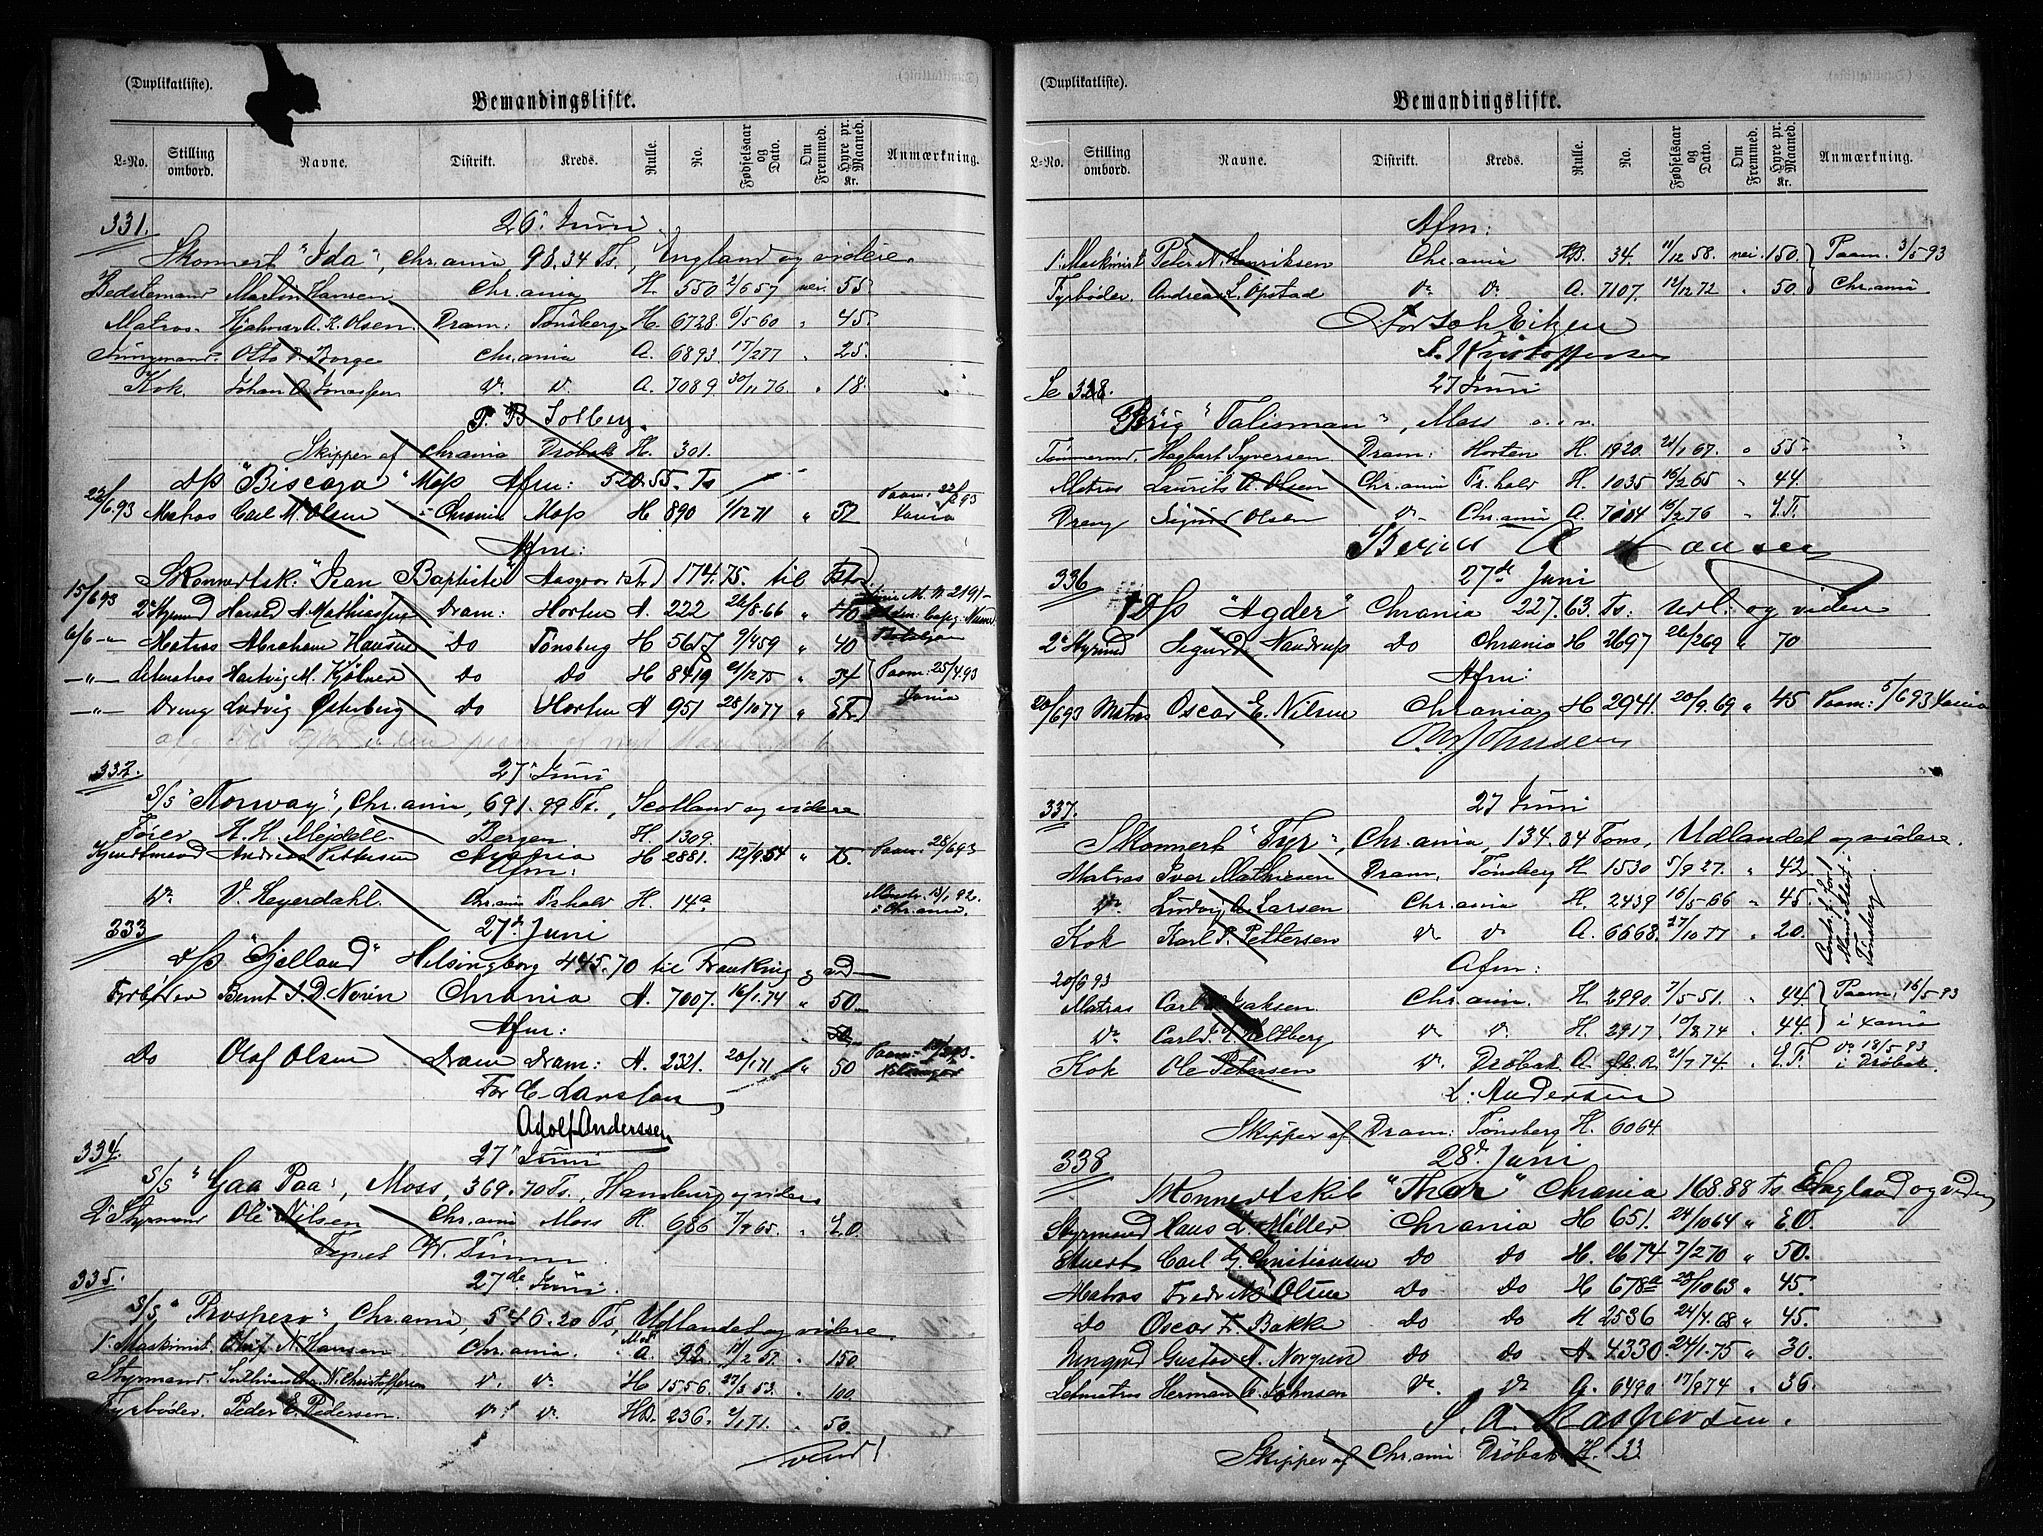 (Duplikatliste).
Bemandingsliste.
L-No. Stilling ombord. Navne. Distrikt. Kreds. Rulle. No. Fødselsaar og Dato. Om Fremmed. Hyre pr. Maaned. Kr. Anmærkning.
331. 26 Juni
Skonnert "Ida", Chr.ania 98.34 Ts., England og videre.
Bedstemand Martin Hansen Chr.ania H. 550 2/6 57 nei 55.
Matros. Hjalmar A. R. Olsen. Dram: Tønsberg H. 6728 6/5 60 " 45.
Jungmand. Otto Borge Chr.ania A. 6893 17/2 77 " 25.
Kok. Johan A. Jonassen do do A. 7089 30/11 76 " 18.
P. B. Solberg.
Skipper af Chr.ania Drøbak H. 301.
d/s "Biscaya" Moss Afm: 520.55. Ts
22/6.93 Matros Carl M. Olsen Chrania Moss H 890 1/12 71 " 32 Paam: 22/2 93 Xania
Afm:
Skonnertsk. "Jean Baptiste" Aasgaardstr. 174.75. til
15/6 93 2 Styrmd Harald A. Mathiassen Dram: Horten A. 222 26/8.66 " 40
6/6 -"- Matros Abraham Hansen Do Tønsberg H 5657 9/4 59 " 40
-"- Letmatros Hartvig M. Kjølner Do Do H 8419 21/12 75 " 34 Paam: 25/4.93
-"- Dreng Ludvig Østerberg Do Horten A 951 28/10 77 " Xania
332. 27 Juni
S/S "Norway", Chr.ania, 691.99 Ts., Scotland og videre
Fører H. H. Mejdell Bergen H. 1309.
Kjendtmand Andreas Pettersen Chr.ania H 2881. 12/9 54 " 75 Paam: 28/6 93
Afm:
do V. Heyerdahl. Chr.ania Fr.hald H. 14a Mønstr. 13/1 92. i Chr.ania.
333 27de Juni
d/s "Sjelland" Helsingborg 445.70 til Frankrig og vid
Fyrbøder Bernt J. D. Norén Chrania A. 7007. 16/1.74 " 50.
Afm:
Do Olaf Olsen Dram Dram: A. 2321. 20/1 71 " 50
For E. Larsson
Adolf Anderssen
334. 27 Juni
S/S "Gaa Paa", Moss, 369.70 Ts., Hamburg og videre
2 Styrmand Ole Nilsen Chr.ania Moss H. 686 7/7 65.
335. 27de Juni.
S/S "Prospero", Chr.ania, 546.20 Ts, Udlandet og videre
1 Maskinist. N. Hansen Chr.ania. A. 92. " 150
Styrmand. N. Christoffersen do do H 1556. 27/3 53. " 100
Fyrbøder. Peder E. Pedersen. do do HB. 236. 2/1 71. " 50.
vend!
(Duplikatliste).
Bemandingsliste.
L-No. Stilling ombord. Navne. Distrikt. Kreds. Rulle. No. Fødselsaar og Dato. Om Fremmed. Hyre pr. Maaned. Kr. Anmærkning.
Afm:
1 Maskinist Peter N. Henriksen Chr.ania HB. 34. 11/12 58. nei. 150. Paam. 3/5 93
Fyrbøder. Andreas L. Opstad do do A. 7107. 12/12 72 " 50. Chr.ania
For Joh Eitzen
S. Kristoffersen
Se 328. 27 Juni
Brig "Talisman", Moss o.s.v.
Tømmermd. Hagbart Syversen Dram: Horten H. 1920 21/1 67. " 55
Matros Laurits A. Olsen Chr.ania Fr.hald H. 1035 16/2 65 " 44.
Dreng Sigurd Olsen do Chr.ania A. 7104 15/2 76 "
336 27de Juni
D/s "Agder" Chrania 227.63. Ts: Udl. og viden
2 Styrmd Sigurd Naudrup Do Chrania H 2697 26/2 69 " 70
Afm:
20/6 93 Matros Oscar E. Nilsen Chrania H 2941. 20/9.69 " 45 Paam: 5/6 93 Xania
337. 27 Juni
Skonnert "Tyr", Chr.ania, 134.04 Tons, Udlandet og videre.
Matros Iver Mathiesen Dram, Tønsberg H 1530 5/9 27. " 42
do Ludvig A. Larsen Chr.ania H. 2439 16/5 66 " 45
Kok Karl P. Pettersen do do A. 6668. 27/10 77 " 20.
Afm:
20/6 93
Matros Carl Isaksen Chr.ania. H. 2990 7/5 51. " 44. Paam. 16/5 93
do Carl do do H. 2917 10/8 74 " 44. i Xania
Kok Ole Petersen do Drøbak A. 21/7 74. " do 18/5 93 i Drøbak.
L. Andersen
Skipper af Dram: Tønsberg H. 6064.
338 28de Juni
Skonnertskib "Thor" Chrania 168.88 Ts England og viden
Styrmand Hans L. Møller Chrania H 651. 24/10 64 "
Stuert Carl G. Christiansen Do Do H. 2674 7/2 70 " 50.
Matros Fredrik Olsen Do Do H 678a 23/10 63 " 45.
Do Oscar F. Bakke Do Do H 2536 24/4.68 " 45.
Jungmd Gustav A. Norgren Do Do A. 4330. 24/1.75 " 30.
Letmatros Herman C. Johnsen do do A. 6490 17/8 74 " 36.
S. A. Kaspersen.
Skipper af Chr.ania Drøbak H. 33